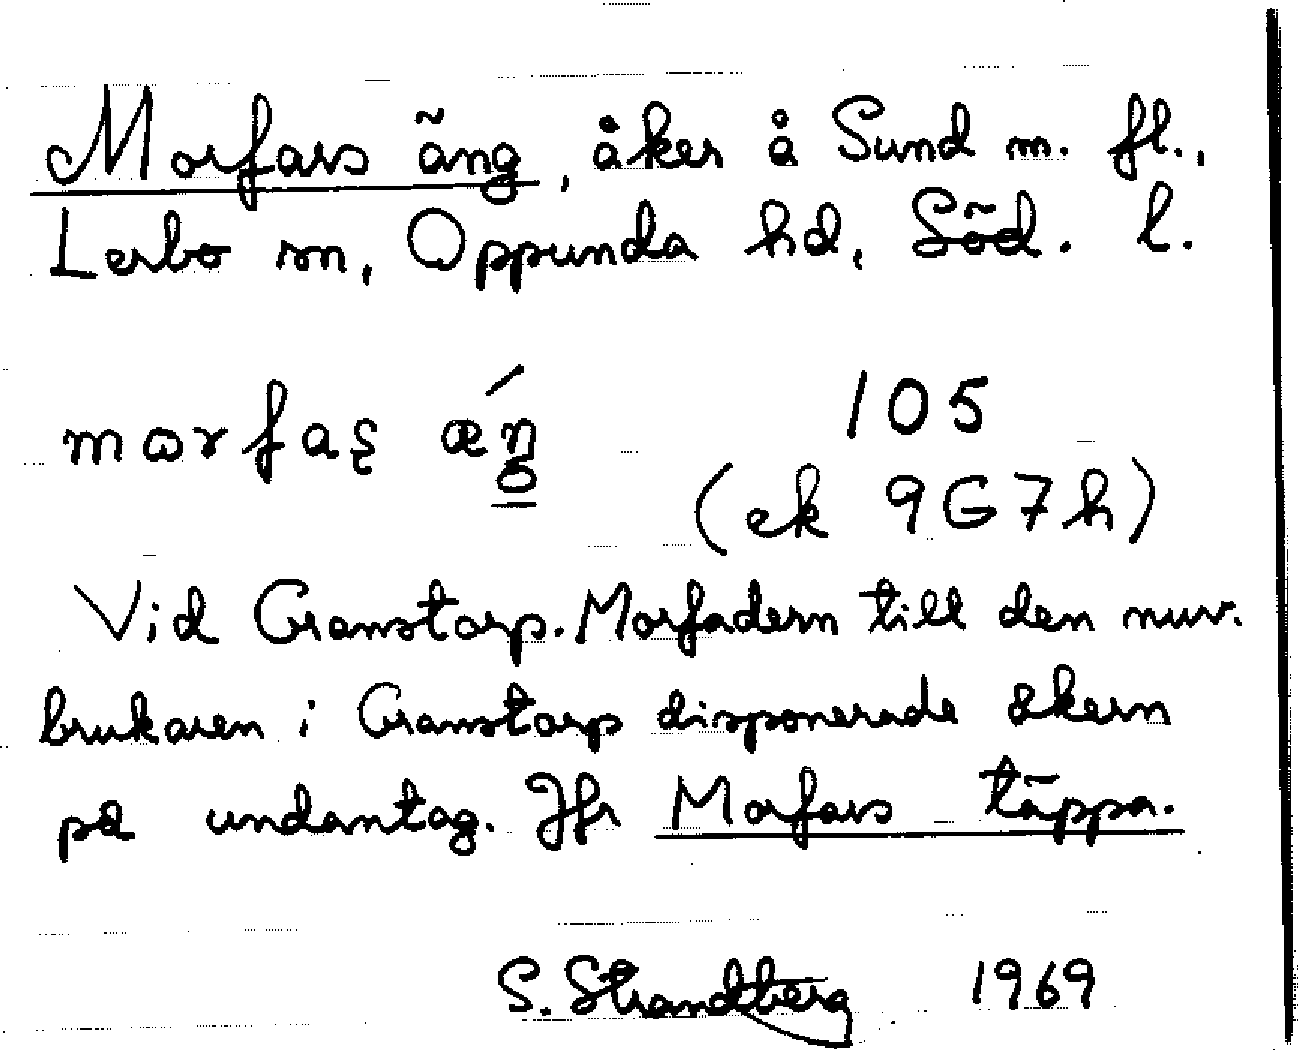 Morfars äng, åker å Sund m. fl.,
Lerbo sn, Oppunda hd, Söd. l.
105
(ek 9G7h)
Vid Granstorp. Morfadern till den nuv.
brukaren i Granstorp disponerade åkern
på undantag. Jfr Morfars täppa.
S. Strandberg 1969